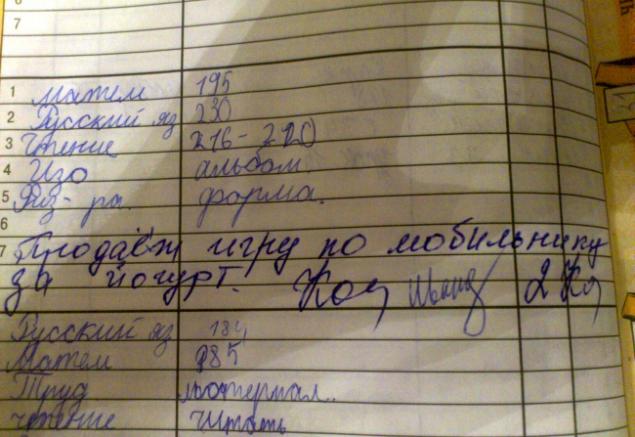 6
7
1 матем 195
2 Русский яз 230
3 Чтение 216-220
4 Изо альбом.
5 Физ-ра. форма.
6
7 Продаёт игру по мобильнику
за йогурт. 2
Русский яз 184
Матем 185
Труд материал..
чтение Читать